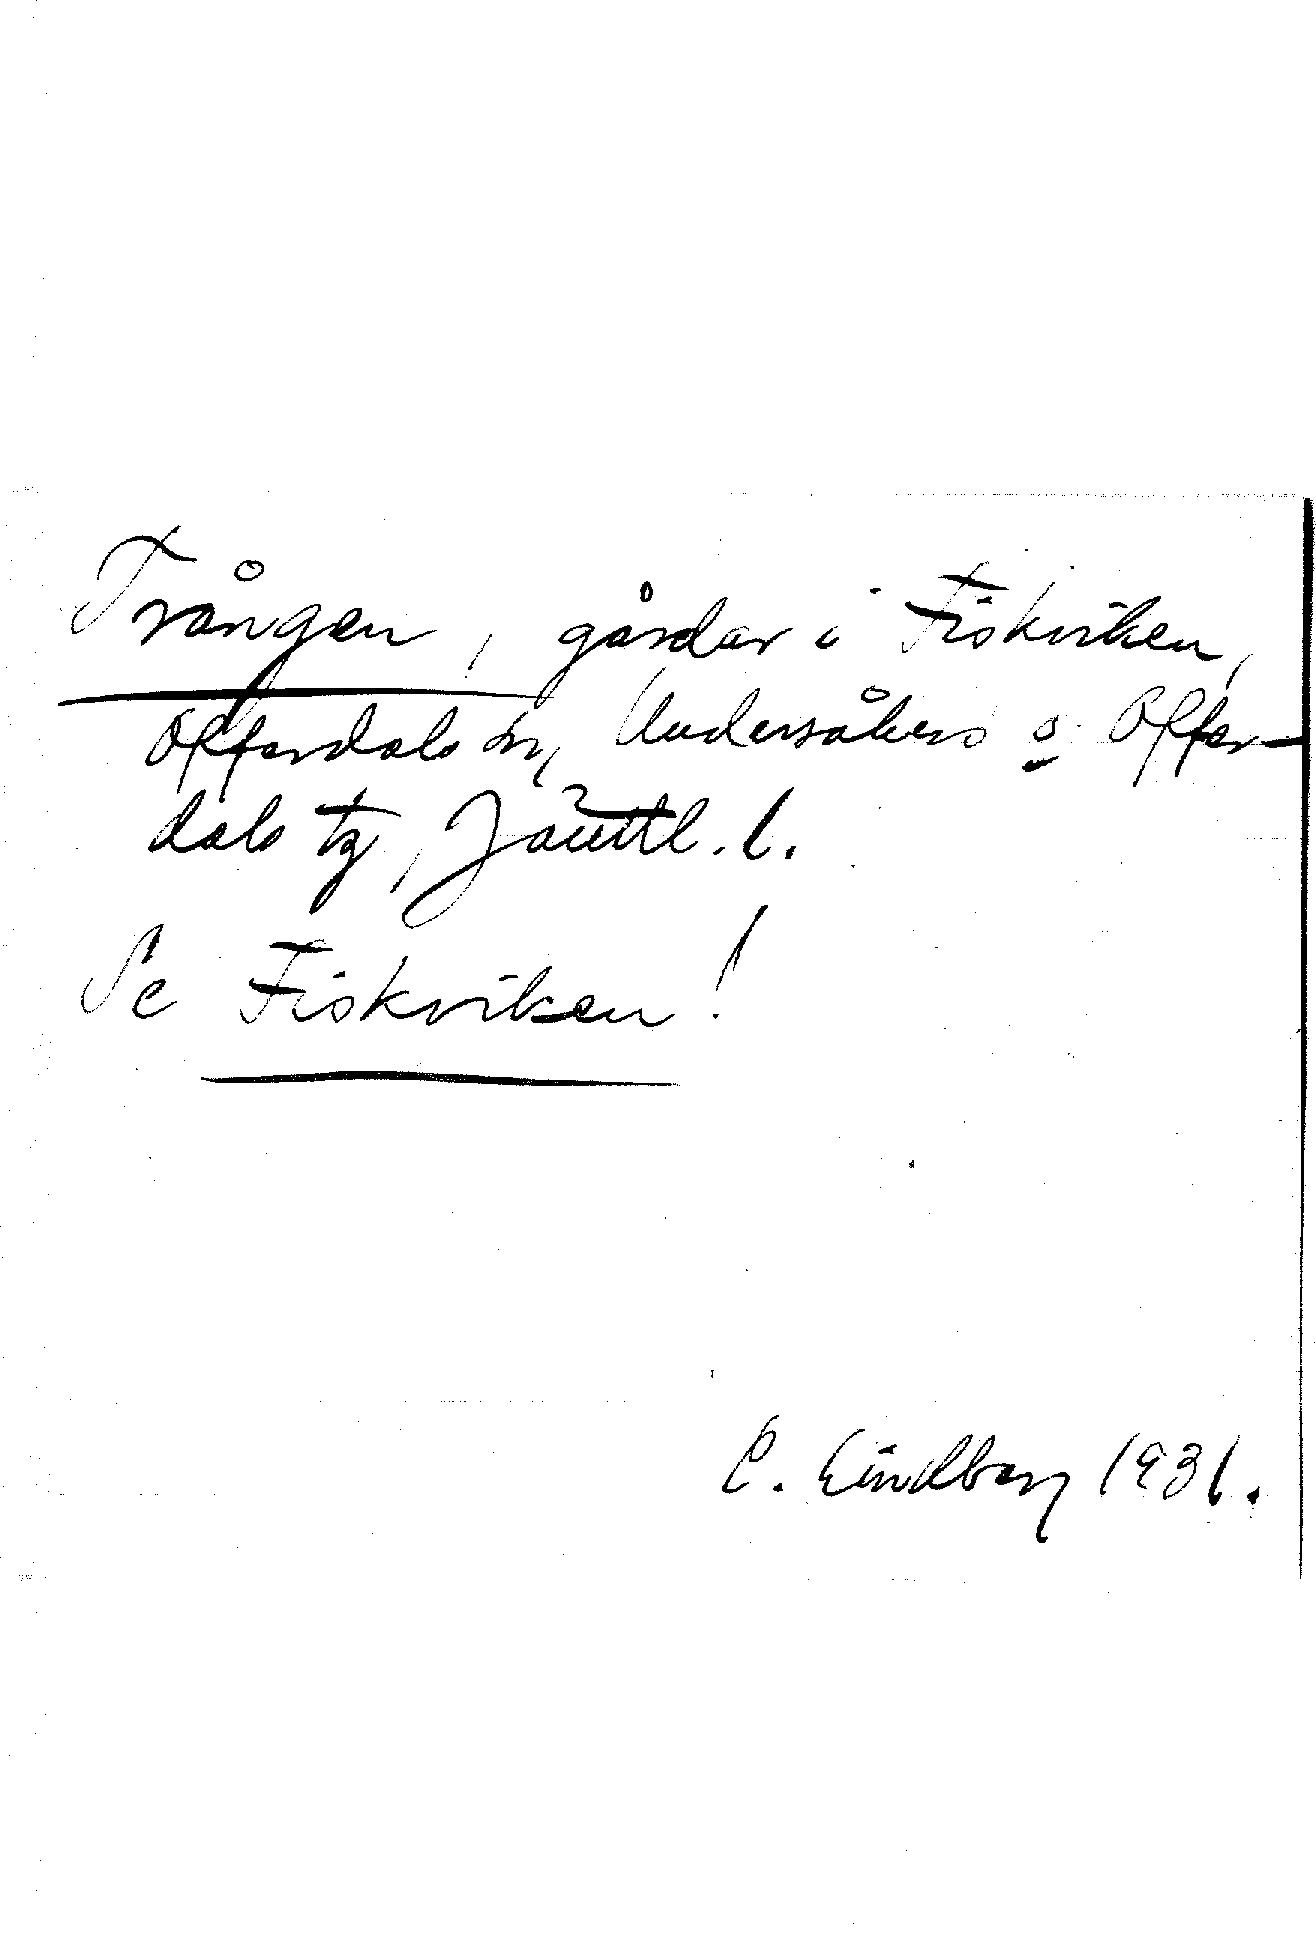 Trången, gårdar i Fiskviken,
Offerdals sn, Undersåkers o Offer-
dals tg, Jämtl. l.
Se Fiskviken!
C. Lindberg 1931.